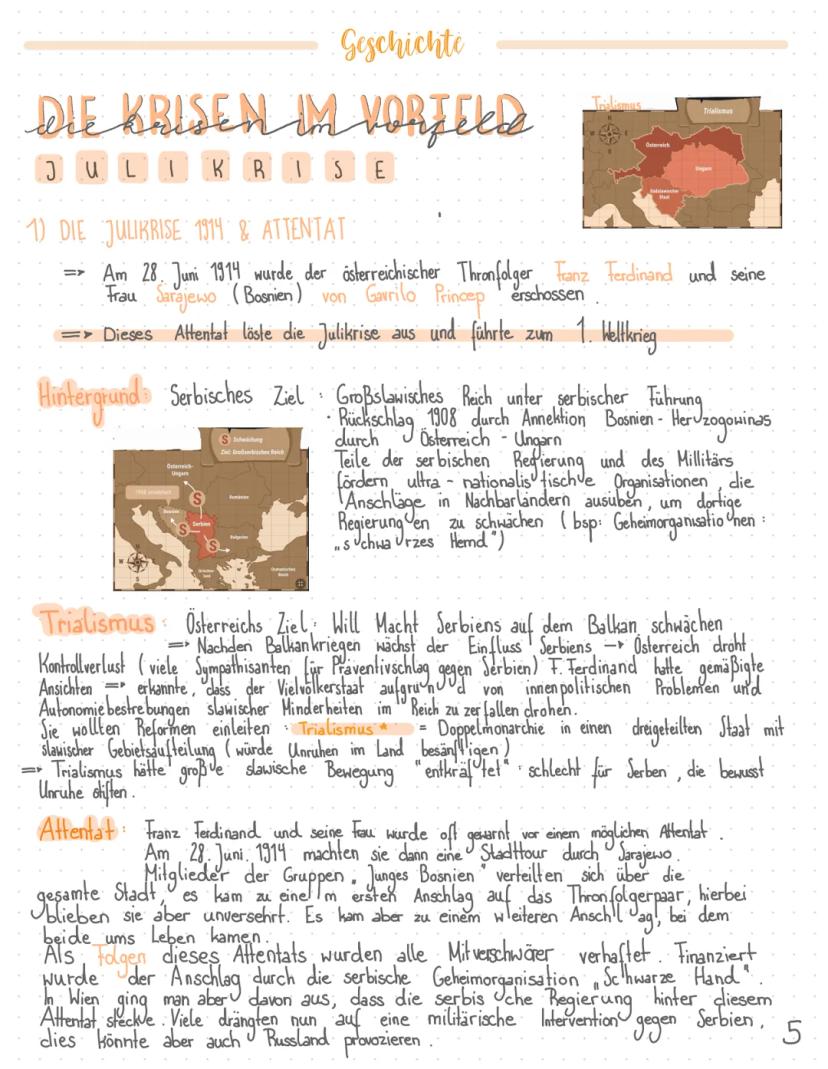 Geschichte
DIE KRISEN IM VORFELD
die krisen im vorfeld
JULIKRISE
Trialismus
Trialismus
Österreich
Ungarn
Südslawischer
Staat
1) DIE JULIKRISE 1914 & ATTENTAT
=> Am 28. Juni 1914 wurde der österreichischer Thronfolger Franz Ferdinand und seine
Frau Sarajewo (Bosnien) von Gavrilo Princep erschossen.
=> Dieses Attentat löste die Julikrise aus und führte zum 1. Weltkrieg
Hintergrund: Serbisches Ziel: Großslawisches Reich unter serbischer Führung
· Rückschlag 1908 durch Annektion Bosnien-Herzogowinas
durch Österreich-Ungarn
Teile der serbischen Regierung und des Millitärs
fördern ultra-nationalistische Organisationen, die
Anschläge in Nachbarländern ausüben, um dortige
Regierungen zu schwächen (bsp: Geheimorganisationen:
„schwarzes Hemd")
S Schwächung
Ziel: Großserbisches Reich
Österreich-
Ungarn
1908 annektiert
Rumänien
Bosnien
Serbien
Bulgarien
Osmanisches
Reich
Trialismus: Österreichs Ziel: Will Macht Serbiens auf dem Balkan schwächen
=> Nachden Balkankriegen wächst der Einfluss Serbiens -> Österreich droht
Kontrollverlust (viele Sympathisanten für Präventivschlag gegen Serbien) F. Ferdinand hatte gemäßigte
Ansichten => erkannte, dass der Vielvölkerstaat aufgrund von innenpolitischen Problemen und
Autonomiebestrebungen slawischer Minderheiten im Reich zu zerfallen drohen.
Sie wollten Reformen einleiten: Trialismus* = Doppelmonarchie in einen dreigeteilten Staat mit
slawischer Gebietsaufteilung (würde Unruhen im Land besänftigen)
=> Trialismus hätte große slawische Bewegung "entkräftet": schlecht für Serben, die bewusst
Unruhe stiften.
Attentat: Franz Ferdinand und seine Frau wurde oft gewarnt vor einem möglichen Attentat.
Am 28. Juni. 1914 machten sie dann eine Stadttour durch Sarajewo.
Mitglieder der Gruppen „Junges Bosnien" verteilten sich über die
gesamte Stadt, es kam zu einem ersten Anschlag auf das Thronfolgerpaar, hierbei
blieben sie aber unversehrt. Es kam aber zu einem weiteren Anschlag, bei dem
beide ums Leben kamen.
Als Folgen dieses Attentats wurden alle Mitverschwörer verhaftet. Finanziert
wurde der Anschlag durch die serbische Geheimorganisation „Schwarze Hand".
In Wien ging man aber davon aus, dass die serbische Regierung hinter diesem
Attentat steckve. Viele drängten nun auf eine militärische Intervention gegen Serbien,
dies könnte aber auch Russland provozieren.
5